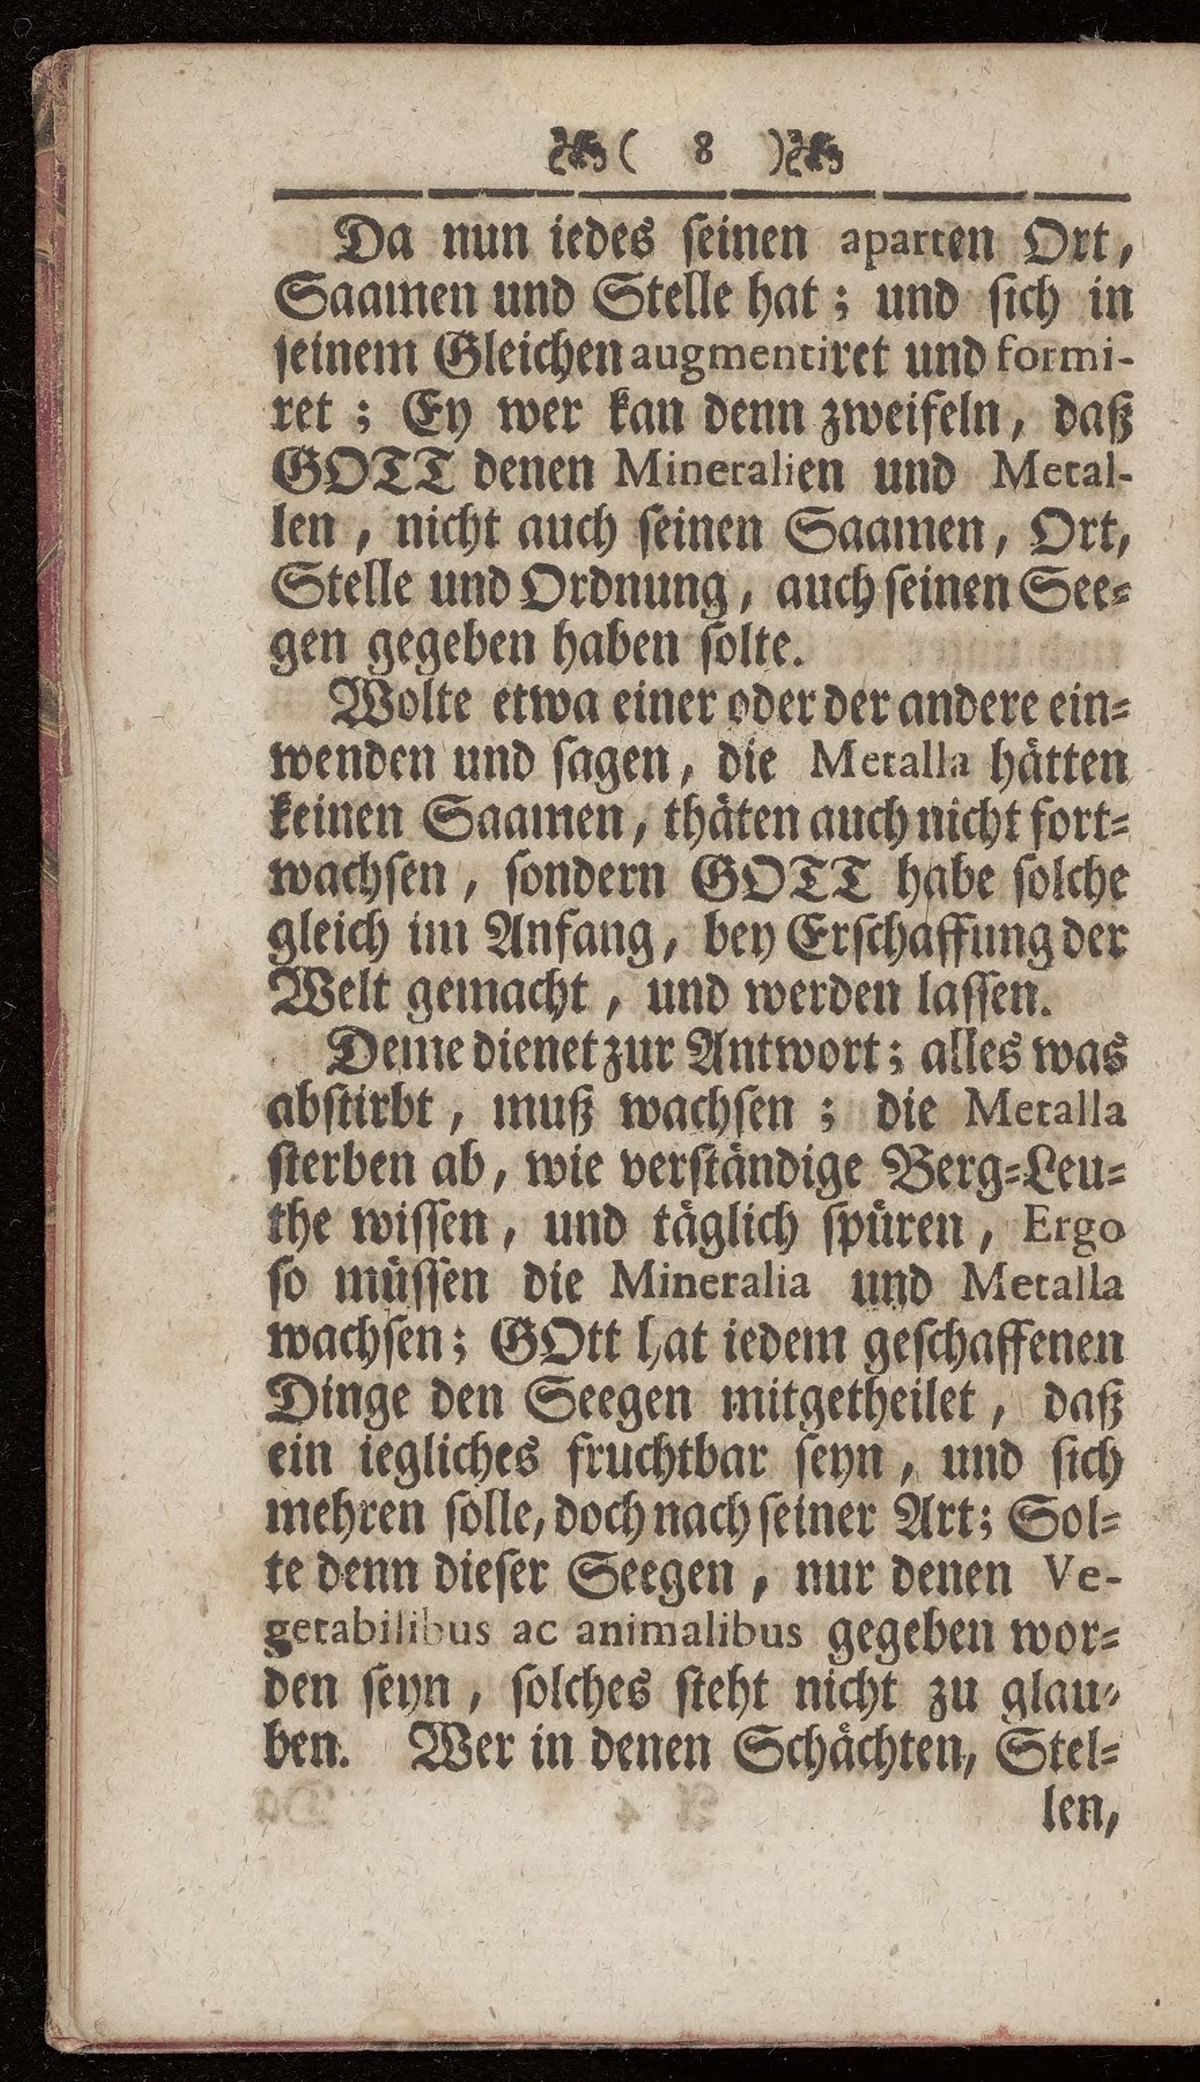 ( 8 )
Da nun iedes seinen aparten Ort,
Saamen und Stelle hat; und sich in
seinem Gleichen augmentiret und formi-
ret; Ey wer kan denn zweifeln, daß
GOTT denen Mineralien und Metal-
len, nicht auch seinen Saamen, Ort,
Stelle und Ordnung, auch seinen See-
gen gegeben haben solte.
Wolte etwa einer oder der andere ein-
wenden und sagen, die Metalla hätten
keinen Saamen, thäten auch nicht fort-
wachsen, sondern GOTT habe solche
gleich im Anfang, bey Erschaffung der
Welt gemacht, und werden lassen.
Deme dienet zur Antwort; alles was
abstirbt, muß wachsen; die Metalla
sterben ab, wie verständige Berg-Leu-
the wissen, und täglich spüren, Ergo
so müssen die Mineralia und Metalla
wachsen; GOtt hat iedem geschaffenen
Dinge den Seegen mitgetheilet, daß
ein iegliches fruchtbar seyn, und sich
mehren solle, doch nach seiner Art; Sol-
te denn dieser Seegen, nur denen Ve-
getabilibus ac animalibus gegeben wor-
den seyn, solches steht nicht zu glau-
ben. Wer in denen Schächten, Stel-
len,